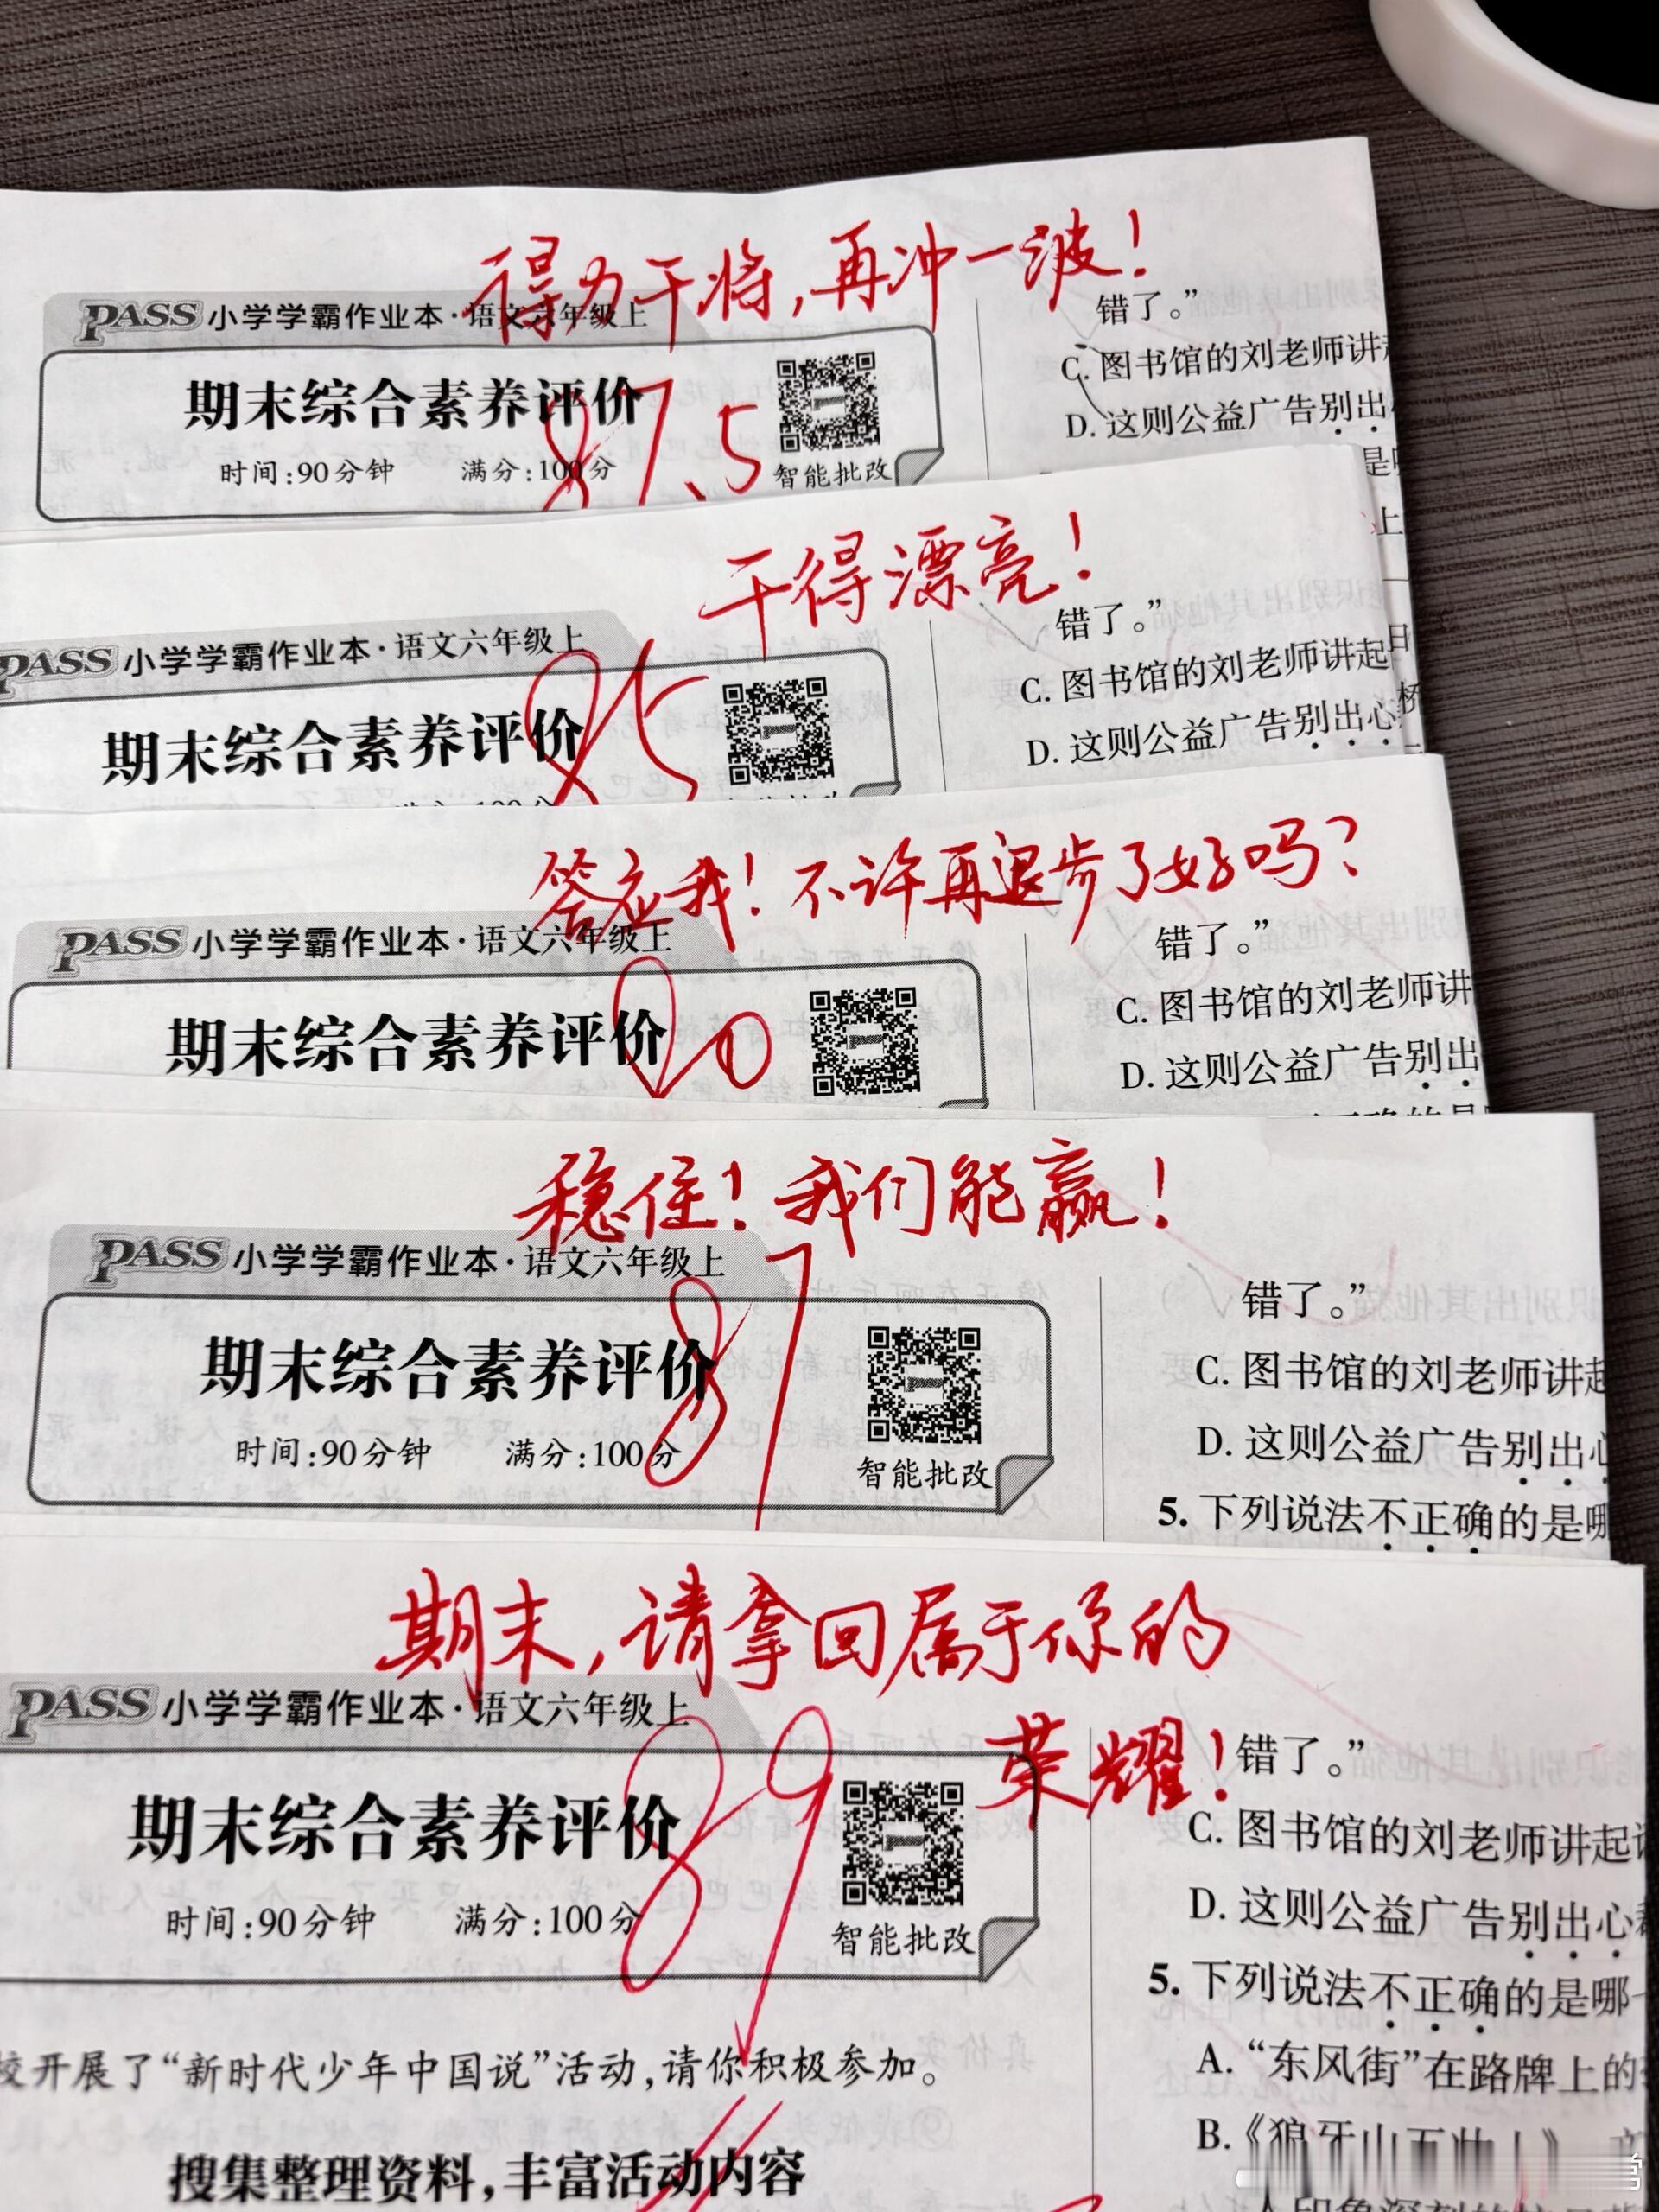 得力干将,再冲一波!
PASS 小学学霸作业本·语文六年级上
期末综合素养评价
87.5
时间:90分钟 满分:100分
智能批改
错了。”
C. 图书馆的刘老师讲
D. 这则公益广告别出
干得漂亮!
PASS 小学学霸作业本·语文六年级上
期末综合素养评价
85
错了。”
C. 图书馆的刘老师讲起
D. 这则公益广告别出心
答应我!不许再退步了好吗?
PASS 小学学霸作业本·语文六年级上
期末综合素养评价
错了。”
C. 图书馆的刘老师讲
D. 这则公益广告别出
稳住!我们能赢!
PASS 小学学霸作业本·语文六年级上
期末综合素养评价
87
时间:90分钟 满分:100分
智能批改
错了。”
C. 图书馆的刘老师讲起
D. 这则公益广告别出心
5. 下列说法不正确的是哪
期末,请拿回属于你的
荣耀!
PASS 小学学霸作业本·语文六年级上
期末综合素养评价
89
时间:90分钟 满分:100分
智能批改
校开展了“新时代少年中国说”活动,请你积极参加。
搜集整理资料,丰富活动内容
错了。”
C. 图书馆的刘老师讲起
D. 这则公益广告别出心
5. 下列说法不正确的是哪一
A. “东风街”在路牌上的
B.《狼牙山五壮士》